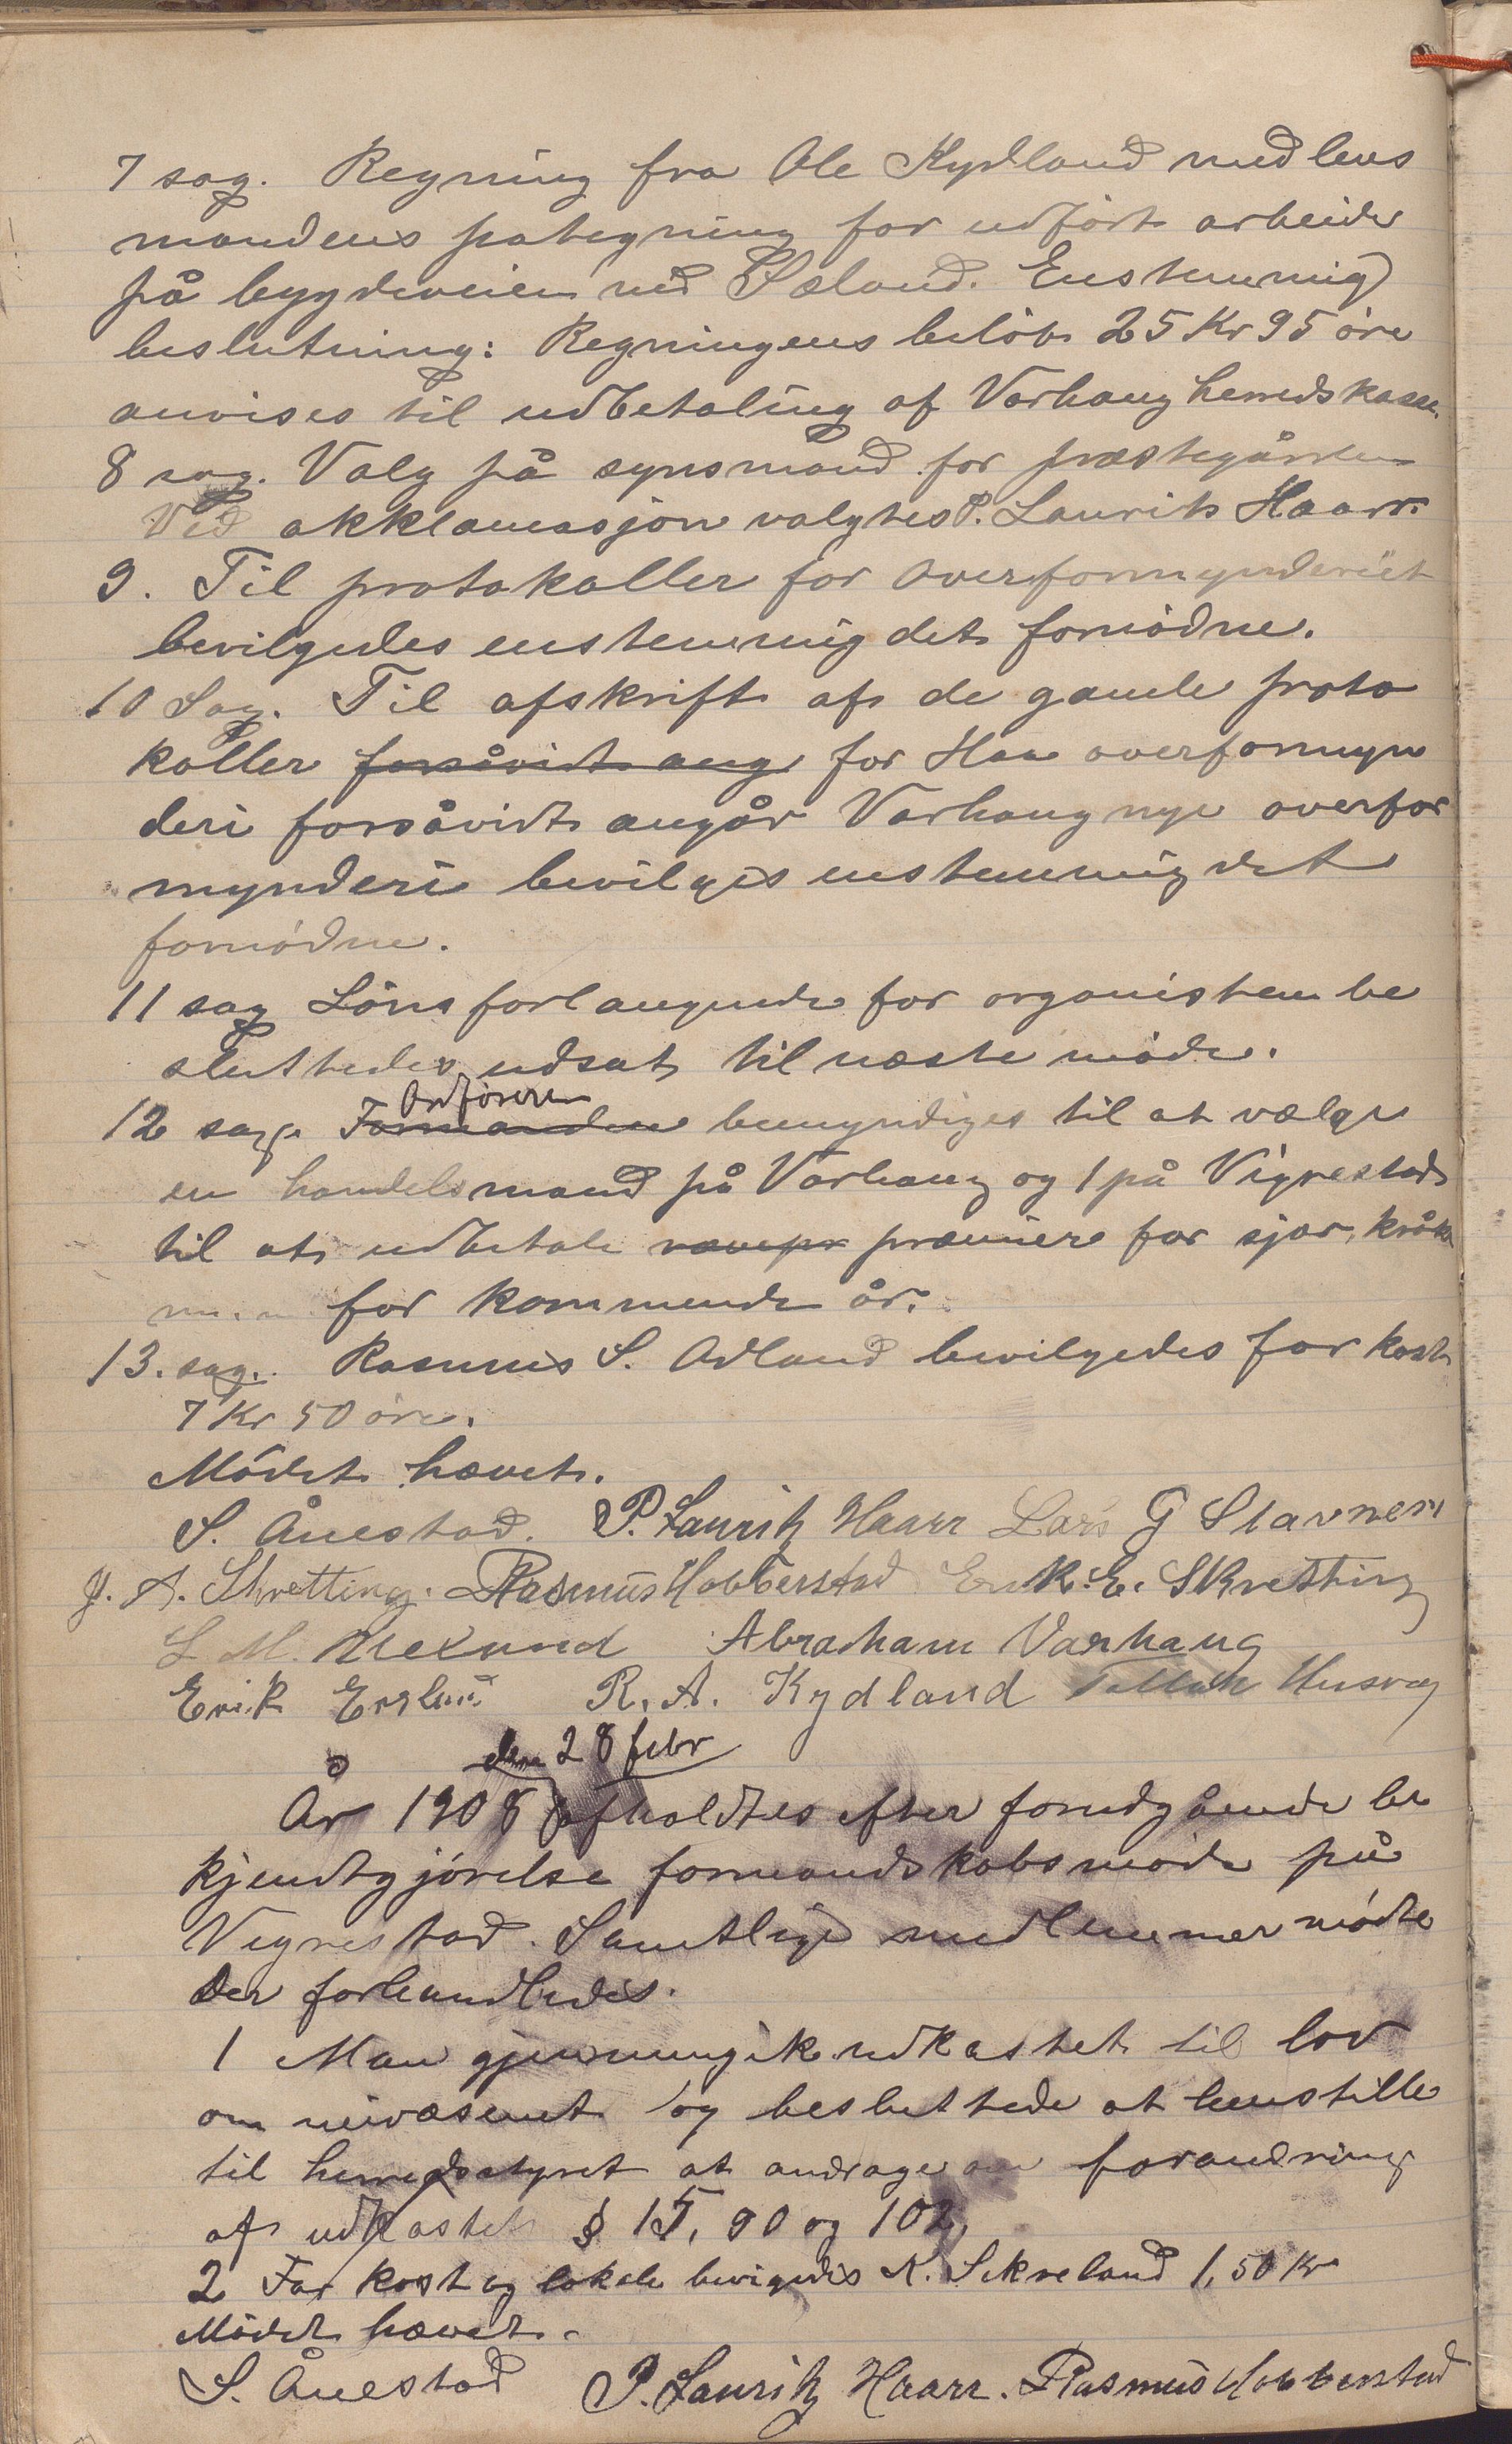 7 sag. Regning fra Ole Kydland med lens
mandens påtegning for udført arbeide
på bygdeveien ved Sæland. Enstemmig
beslutning: Regningens beløb 25 Kr 95 øre
anvises til udbetaling af Varhaug herredskasse.
8 sag. Valg på synsmand for præstegården
Ved akklamasjon valgtes P. Laurits Haarr.
9. Til protokoller for overformynderiet
bevilgedes enstemmig det fornødne.
10 Sag. Til afskrift af de gamle proto
koller forsåvidt ang for Haa overformyn
deri forsåvidt angår Varhaug nye overfor
mynderi bevilges enstemmig det
fornødne.
11 sag Lønsforlangende for organisten be
sluttedes udsat til næste møde.
Ordføreren
12 sag. Formanden bemyndiges til at vælge
en handelsmand på Varhaug og 1 på Vigrestad
til at udbetale ravnepr præmier for sjor, kråke
m.m for kommende år.
13. sag. Rasmus S. Ødland bevilgedes for kost
7 Kr 50 øre.
Mødet hævet.
S. Ånestad. P. Lauritz Haarr Lars G Stavnem
J. A. Skretting. Rasmus Hobberstad K. E. Skretting
L M. Abraham Varhaug
Erik R. A. Kydland Tollak Husvæg
den 28 febr
År 1908 afholdtes efter forudgående be
kjendtgjørelse formandskabsmøde på
Vigrestad. Samtlige medlemmer mødte
Der forhandledes.
1 Man gjennemgik udkastet til lov
om veivæsenet og besluttede at henstille
til herredsstyret at andrage om forandring
af udkastets § 15, 90 og 102,
2 For kost og lokale bevigedes K. Skreland 1,50 Kr
Mødet hævet.
S. Ånestad P. Lauritz Haarr. Rasmus Hobberstad